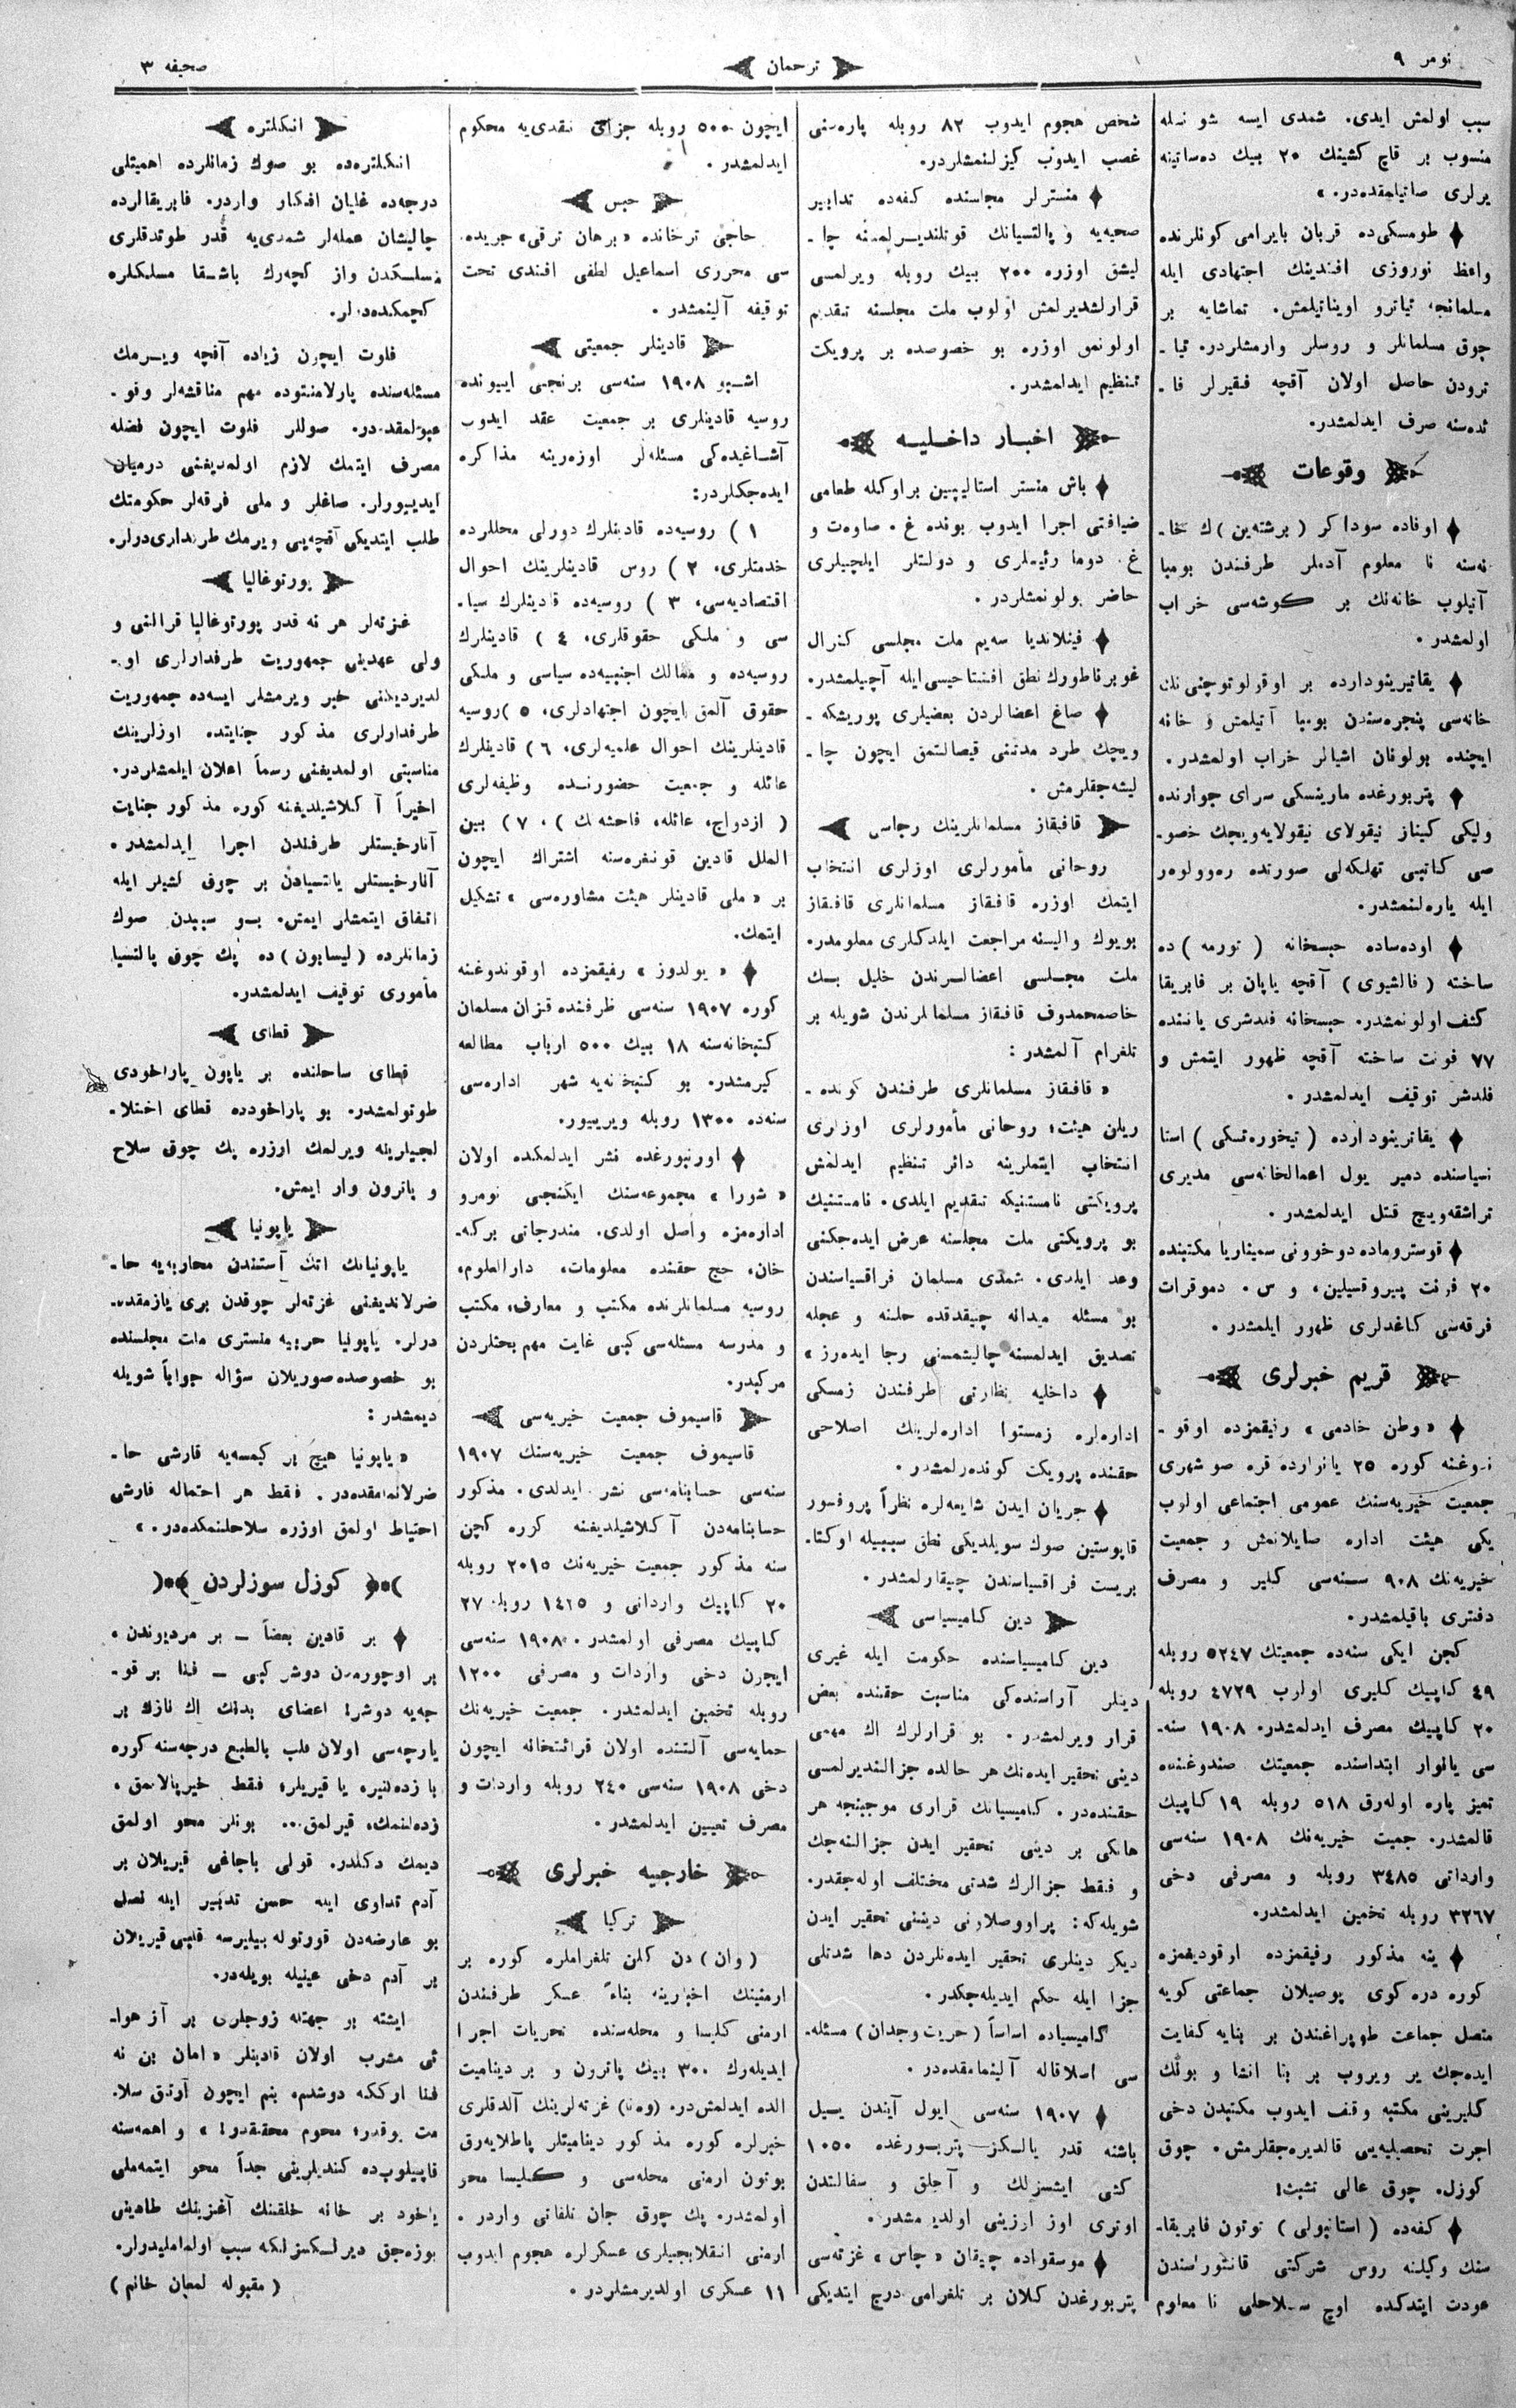 نومر ۹
ترجمان
صحیفه ۳
سبب اولمش ایدی. شمدی ایسه شو نسله
منسوب بر قاچ کشینك ۲۰ بیك ده‌ساتینه
یرلری صاتیلمقده‌در. »
طومسکی‌ده قربان بایرامی کونلرنده
واعظ نوروزی افندینك اجتهادی ایله
مسلمانجه تیاترو اویناتیلمش. تماشایه بر
چوق مسلمانلر و روسلر وارمشلردر. تیا-
ترودن حاصل اولان آقچه فقیرلر فا-
ئده‌سنه صرف ایدلمشدر.
وقوعات
اوفاده سوداکر ( برشته‌ین )ك خا-
نه‌سنه نا معلوم آدملر طرفندن بومبا
آتیلوب خانه‌نك بر کوشه‌سی خراب
اولمشدر.
یقاتیرینودارده بر اوقولوتوچنی‌نك
خانه‌سی پنجره‌سندن بومبا آتیلمش و خانه
ایچنده بولونان اشیالر خراب اولمشدر.
پتربورغده مارینسکی سرای جوارنده
ولیکی کیناز نیقولای نیقولایه‌ویچك خصو-
صی کتابتی تهلکه‌لی صورتده ره‌وولوه‌ر
ایله یاره‌لنمشدر.
اوده‌ساده حبسخانه ( تورمه ) ده
ساخته ( فالشیوی ) آقچه یاپان بر فابریقا
کشف اولونمشدر. حبسخانه فلدشری یاننده
۷۷ فونت ساخته آقچه ظهور ایتمش و
فلدشر توقیف ایدلمشدر.
یقاترینودارده ( تیخوره‌تسکی ) استا
نسیاسنده دمیر یول اعمالخانه‌سی مدیری
تراشقه‌ویچ قتل ایدلمشدر.
قوستروماده دوخوونی سمیناریا مکتبنده
۲۰ فونت پیروقسیلین، و س. دموقرات
فرقه‌سی کاغدلری ظهور ایلمشدر.
قریم خبرلری
« وطن خادمی » رفیقمزده اوقو-
ندوغنه کوره ۲۵ یانوارده قره صو شهری
جمعیت خیریه‌سنك عمومی اجتماعی اولوب
یکی هیئت اداره صایلانمش و جمعیت
خیریه‌نك ۹۰۸ سنه‌سی کلیر و مصرف
دفتری باقیلمشدر.
کچن ایکی سنه‌ده جمعیتك ۵۲٤۷ روبله
٤۹ کاپیك کلیری اولوب ٤۷۲۹ روبله
۲۰ کاپیك مصرف ایدلمشدر. ۱۹۰۸ سنه-
سی یانوار ابتداسنده جمعیتك صندوغنده
تمیز پاره اوله‌رق ۵۱۸ روبله ۱۹ کاپیك
قالمشدر. جمیت خیریه‌نك ۱۹۰۸ سنه‌سی
وارداتی ۳٤۸۵ روبله و مصرفی دخی
۳۲۶۷ روبله تخمین ایدلمشدر.
ینه مذکور رفیقمزده اوقودیغمزه
کوره دره کوی یوصیلان جماعتی کویه
متصل جماعت طوپراغندن بر بنایه کفایت
ایده‌جك یر ویروب بر بنا انشا و بونك
کلیرینی مکتبه وقف ایدوب مکتبدن دخی
اجرت تحصیلیه‌یی قالدیره‌جقلرمش. چوق
کوزل. چوق عالی تشبث!
کفه‌ده ( استانبولی ) توتون فابریقا-
سنك وکیلنه روس شرکتی قانتوراسندن
عودت ایتدکده اوچ سلاحلی نا معلوم
شخص هجوم ایدوب ۸۲ روبله پاره‌سنی
غصب ایدوب کیزلنمشلردر.
منسترلر مجلسنده کفه‌ده تدابیر
صحیه‌یه و پالتسیانك قوتلندیرلمسنه چا-
لیشق اوزره ۲۰۰ بیك روبله ویرلمسی
قرارلشدیرلمش اولوب ملت مجلسنه تقدیم
اولونمق اوزره بو خصوصده بر پرویکت
تنظیم ایدلمشدر.
اخبار داخلیه
باش منستر استالیپین براوکله طعامی
ضیافتی اجرا ایدوب بونده غ. صاوه‌ت و
غ. دوما رئیسلری و دولتلر ایلچیلری
حاضر بولونمشلردر.
فینلاندیا سه‌یم ملت مجلسی کنرال
غوبرناطورك نطق افتتاحیسی‌ایله آچیلمشدر.
صاغ اعضالردن بعضیلری پوریشکه-
ویچك طرد مدتنی قیصالتمق ایچون چا-
لیشه‌جقلرمش.
قافقاز مسلمانلرینك رجاسی
روحانی مأمورلری اوزلری انتخاب
ایتمك اوزره قافقاز مسلمانلری قافقاز
بویوك والیسنه مراجعت ایلدکلری معلومدر.
ملت مجلسی اعضالرندن خلیل بك
خاصمحمدوف قافقاز مسلمانلرندن شویله بر
تلغرام آلمشدر:
« قافقاز مسلمانلری طرفندن کونده-
ریلن هیئت؛ روحانی مأمورلری اوزلری
انتخاب ایتملرینه دائر تنظیم ایدلمش
پرویکتی نامستنیکه تقدیم ایلدی. نامستنیك
بو پرویکتی ملت مجلسنه عرض ایده‌جکنی
وعد ایلدی. شمدی مسلمان فراقسیاسندن
بو مسئله میدانه چیقدقده حلنه و عجله
تصدیق ایدلمسنه چالیشمسنی رجا ایده‌رز »
داخلیه نظارتی طرفندن زمسکی
اداره‌لره زمستوا اداره‌لرینك اصلاحی
حقنده پرویکت کونده‌رلمشدر.
جریان ایدن شایعه‌لره نظراً پروفسور
قاپوستین صوك سویلدیکی نطق سببیله اوکتا-
بریست فراقسیاسندن چیقارلمشدر.
دین کامیسیاسی
دین کامیسیاسنده حکومت ایله غیری
دینلر آراسنده‌کی مناسبت حقنده بعض
قرار ویرلمشدر. بو قرارلرك اك مهمی
دینی تحقیر ایده‌نك هر حالده جزالندیرلمسی
حقنده‌در. کامیسیانك قراری موجبنجه هر
هانکی بر دینی تحقیر ایدن جزالنه‌جك
و فقط جزالرك شدتی مختلف اوله‌جقدر.
شویله‌که: پراووصلاونی دینی تحقیر ایدن
دیکر دینلری تحقیر ایده‌نلردن دها شدتلی
جزا ایله حکم ایدیله‌جکدر.
کامیسیاده اساساً ( حریت وجدان ) مسئله-
سی اصلا قاله آلینمامقده‌در.
۱۹۰۷ سنه‌سی ایول آیندن یسیل
باشنه قدر یالکز پتربورغده ۱۰۵۰
کشی ایشسزلك و آجلق و سفالتدن
اوتری اوز اوزینی اولدیرمشدر.
موسقواده چیقان « چاس » غزته‌سی
پتربورغدن کلان بر تلغرامی درج ایتدیکی
ایچون ۵۰۰ روبله جزای نقدی‌یه محکوم
ایدلمشدر.
حبس
حاجی ترخانده « برهان ترقی » جریده-
سی محرری اسماعیل لطفی افندی تحت
توقیفه آلینمشدر.
قادینلر جمعیتی
اشبو ۱۹۰۸ سنه‌سی برنجی اییونده
روسیه قادینلری بر جمعیت عقد ایدوب
آشاغیده‌کی مسئله‌لر اوزه‌رینه مذاکره
ایده‌جکلردر:
۱ ) روسیه‌ده قادینلرك دورلی محللرده
خدمتلری، ۲ ) روس قادینلرینك احوال
اقتصادیه‌سی، ۳ ) روسیه‌ده قادینلرك سیا-
سی و ملکی حقوقلری، ٤ ) قادینلرك
روسیه‌ده و ممالك اجنبیه‌ده سیاسی و ملکی
حقوق آلمق ایچون اجتهادلری، ۵ ) روسیه
قادینلرینك احوال علمیه‌لری، ۶ ) قادینلرك
عائله و جمعیت حضورنده وظیفه‌لری
( ازدواج، عائله، فاحشه‌لك )، ۷ ) بین
الملل قادین قونغره‌سنه اشتراك ایچون
بر « ملی قادینلر هیئت مشاوره‌سی » تشکیل
ایتمك.
« یولدوز » رفیقمزده اوقوندوغنه
کوره ۱۹۰۷ سنه‌سی ظرفنده قزان مسلمان
کتبخانه‌سنه ۱۸ بیك ۵۰۰ ارباب مطالعه
کیرمشدر. بو کتبخانه‌یه شهر اداره‌سی
سنه‌ده ۱۳۰۰ روبله ویرییور.
اورنبورغده نشر ایدلمکده اولان
« شورا » مجموعه‌سنك ایکنجی نومرو
اداره‌مزه واصل اولدی. مندرجاتی برکه-
خان، حج حقنده معلومات، دارالعلوم،
روسیه مسلمانلرنده مکتب و معارف، مکتب
و مدرسه مسئله‌سی کبی غایت مهم بحثلردن
مرکبدر.
قاسیموف جمعیت خیریه‌سی
قاسیموف جمعیت خیریه‌سنك ۱۹۰۷
سنه‌سی حسابنامه‌سی نشر ایدلدی. مذکور
حسابنامه‌دن آکلاشیلدیغنه کوره کچن
سنه مذکور جمعیت خیریه‌نك ۲۰۱۵ روبله
۲۰ کاپیك وارداتی و ۱٤۲۵ روبله ۲۷
کاپیك مصرفی اولمشدر. ۱۹۰۸ سنه‌سی
ایچون دخی واردات و مصرفی ۱۲۰۰
روبله تخمین ایدلمشدر. جمعیت خیریه‌نك
حمایه‌سی آلتنده اولان قرائتخانه ایچون
دخی ۱۹۰۸ سنه‌سی ۲٤۰ روبله واردات و
مصرف تعیین ایدلمشدر.
خارجیه خبرلری
ترکیا
( وان ) دن کلن تلغراملره کوره بر
ارمنینك اخبارینه بناءً عسکر طرفندن
ارمنی کلیسا و محله‌سنده تحریات اجرا
ایدیله‌رك ۳۰۰ بیك پاترون و بر دینامیت
الده ایدلمش‌در. غزته‌لرینك آلدقلری
خبرلره کوره مذکور دینامیتلر پاطلایه‌رق
بوتون ارمنی محله‌سی و کلیسا محو
اولمشدر. پك چوق جان تلفاتی واردر.
ارمنی انقلابجیلری عسکرلره هجوم ایدوب
۱۱ عسکری اولدیرمشلردر.
انکلتره
انکلتره‌ده بو صوك زمانلرده اهمیتلی
درجه‌ده غلیان افکار واردر. فابریقالرده
چالیشان عمله‌لر شمدی‌یه قدر طوتدقلری
مسلکدن واز کچه‌رك باشقا مسلکلره
کچمکده‌درلر.
فلوت ایچون زیاده آقچه ویرمك
مسئله‌سنده پارلامنتوده مهم مناقشه‌لر وقو-
عبولمقده‌در. صوللر فلوت ایچون فضله
مصرف ایتمك لازم اولمدیغنی درمیان
ایدییورلر. صاغلر و ملی فرقه‌لر حکومتك
طلب ایتدیکی آقچه‌یی ویرمك طرفداری‌درلر.
پورتوغالیا
غزته‌لر هر نه قدر پورتوغالیا قرالنی و
ولی عهدینی جمهوریت طرفدارلری او-
لدیردیکنی خبر ویرمشلر ایسه‌ده جمهوریت
طرفدارلری مذکور جنایتده اوزلرینك
مناسبتی اولمدیغنی رسماً اعلان ایلمشلردر.
اخیراً آکلاشیلدیغنه کوره مذکور جنایت
آنارخیستلر طرفندن اجرا ایدلمشدر.
آنارخیستلر پالتسیادن بر چوق کشیلر ایله
اتفاق ایتمشلر ایمش. بو سببدن صوك
زمانلرده ( لیسابون ) ده پك چوق پالتسیا
مأموری توقیف ایدلمشدر.
قطای
قطای ساحلنده بر یاپون پاراخودی
طوتولمشدر. بو پاراخودده قطای اختلا-
لجیلرینه ویرلمك اوزره پك چوق سلاح
و پاترون وار ایمش.
یاپونیا
یاپونیانك آلتدن آستندن محاربه‌یه حا-
ضرلاندیغنی غزته‌لر چوقدن بری یازمقده-
درلر. یاپونیا حربیه منستری ملت مجلسنده
بو خصوصده صوریلان سؤاله جواباً شویله
دیمشدر:
« یاپونیا هیچ بر کیمسه‌یه قارشی حا-
ضرلانمامقده‌در. فقط هر احتماله قارشی
احتیاط اولمق اوزره سلاحلنمکده‌در. »
کوزل سوزلردن
بر قادین بعضاً — بر مردیوندن،
بر اوچورومدن دوشر کبی — فنا بر قو-
جه‌یه دوشر! اعضای بدنك اك نازك بر
پارچه‌سی اولان قلب بالطبع درجه‌سنه کوره
یا زده‌لنیر، یا قیریلر؛ فقط خیرپالانمق،
زده‌لنمك، قیرلمق... بونلر محو اولمق
دیمك دکلدر. قولی باجاغی قیریلان بر
آدم تداوی ایله حسن تدبیر ایله نصل
بو عارضه‌دن قورتوله بیلیرسه قلبی قیریلان
بر آدم دخی عینیله بویله‌در.
ایشته بو جهتله زوجلری بر آز هوا-
ئی مشرب اولان قادینلر « امان بن نه
فنا ارککه دوشدم، بنم ایچون آرتق سلا-
مت یوقدر؛ محوم محققدر! » واهمه‌سنه
قاپیلوب‌ده کندیلرینی جداً محو ایتمه‌ملی
یاخود بر خانه خلقنك آغزینك طادینی
بوزه‌جق دیرلکسزلکه سبب اولماملیدرلر.
( مقبوله لمعان خانم )